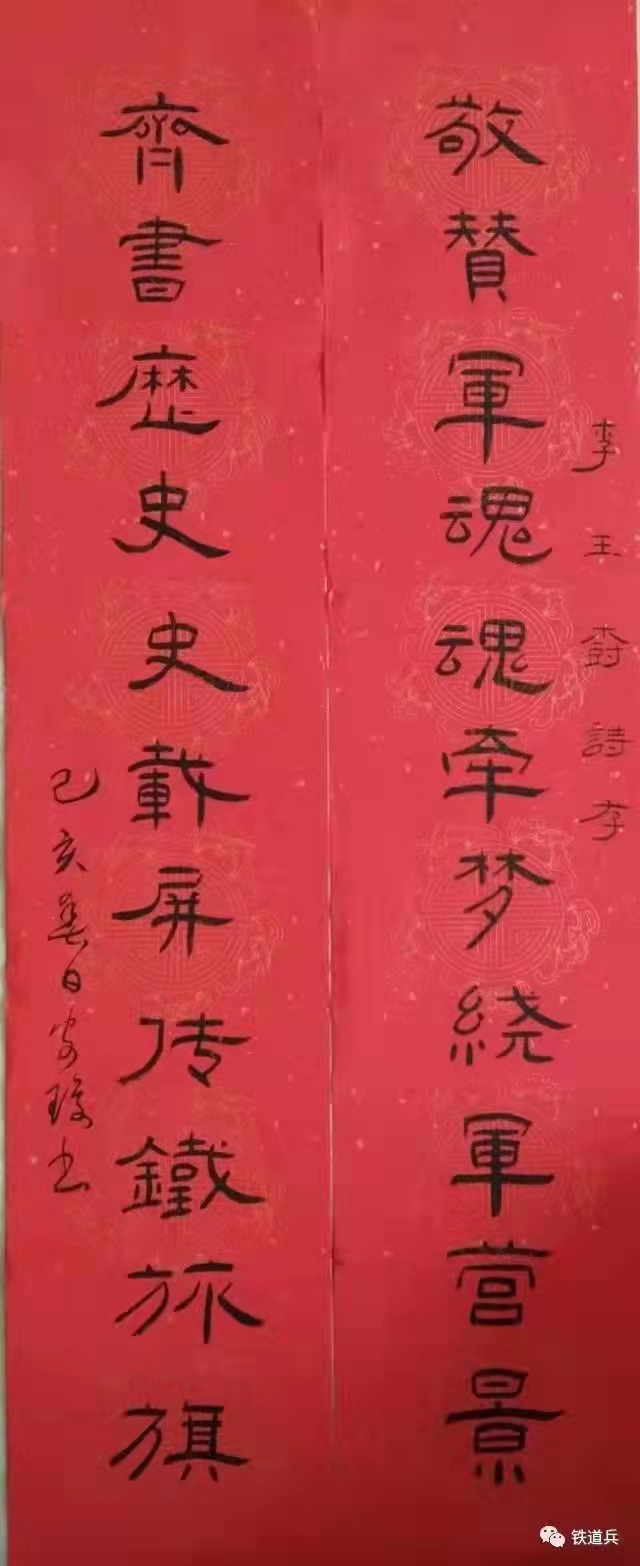 李王詩存
敬賛軍魂魂牵梦绕軍营景
齊書歷史史載屏传鐵旅旗
己亥春日书
铁道兵